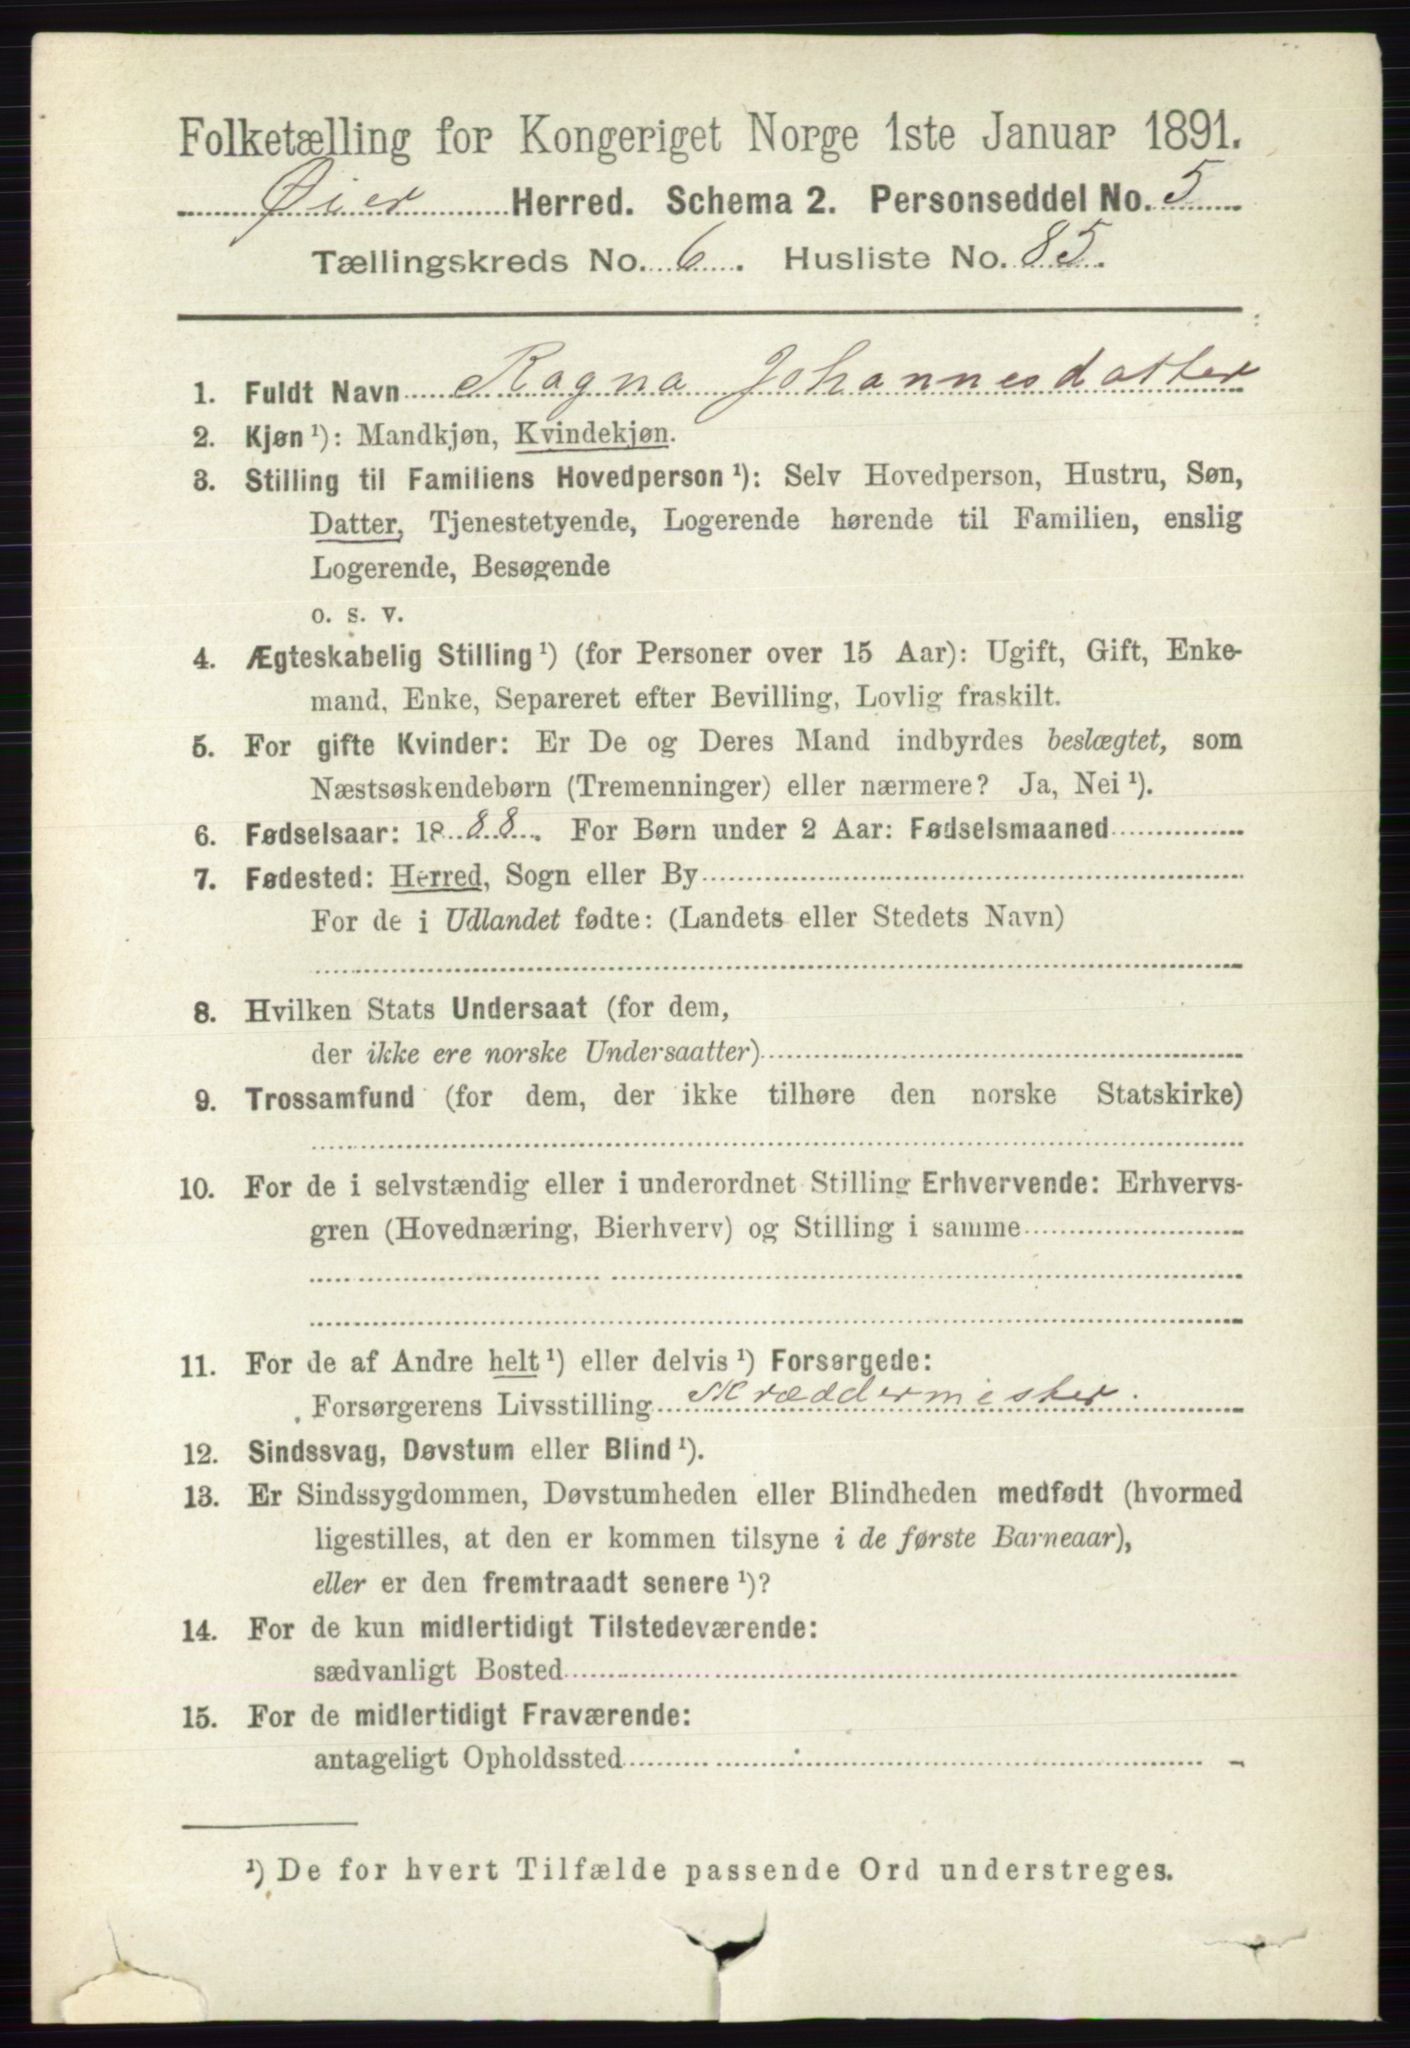 Folketælling for Kongeriget Norge 1ste Januar 1891.
Øier Herred. Schema 2. Personseddel No. 5
Tællingskreds No. 6. Husliste No. 85.
1. Fuldt Navn Ragna Johannesdatter
2. Kjøn ¹): Mandkjøn, Kvindekjøn.
3. Stilling til Familiens Hovedperson ¹): Selv Hovedperson, Hustru, Søn,
Datter, Tjenestetyende, Logerende hørende til Familien, enslig
Logerende, Besøgende
o. s. v.
4. Ægteskabelig Stilling ¹) (for Personer over 15 Aar): Ugift, Gift, Enke-
mand, Enke, Separeret efter Bevilling, Lovlig fraskilt.
5. For gifte Kvinder: Er De og Deres Mand indbyrdes beslægtet, som
Næstsøskendebørn (Tremenninger) eller nærmere? Ja, Nei ¹).
6. Fødselsaar: 1888. For Børn under 2 Aar: Fødselsmaaned
7. Fødested: Herred, Sogn eller By
For de i Udlandet fødte: (Landets eller Stedets Navn)
8. Hvilken Stats Undersaat (for dem,
der ikke ere norske Undersaatter)
9. Trossamfund (for dem, der ikke tilhøre den norske Statskirke)
10. For de i selvstændig eller i underordnet Stilling Erhvervende: Erhvervs-
gren (Hovednæring, Bierhverv) og Stilling i samme
11. For de af Andre helt ¹) eller delvis ¹) Forsørgede:
Forsørgerens Livsstilling Skræddermester.
12. Sindssvag, Døvstum eller Blind ¹).
13. Er Sindssygdommen, Døvstumheden eller Blindheden medfødt (hvormed
ligestilles, at den er kommen tilsyne i de første Barneaar),
eller er den fremtraadt senere ¹)?
14. For de kun midlertidigt Tilstedeværende:
sædvanligt Bosted
15. For de midlertidigt Fraværende:
antageligt Opholdssted
¹) De for hvert Tilfælde passende Ord understreges.